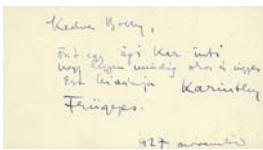 Kedves Bolly,
önt egy égi Kar inti
hogy legyen mindig okos és ügyes
Ezt kívánja Karinthy
Frigyes.
927 november